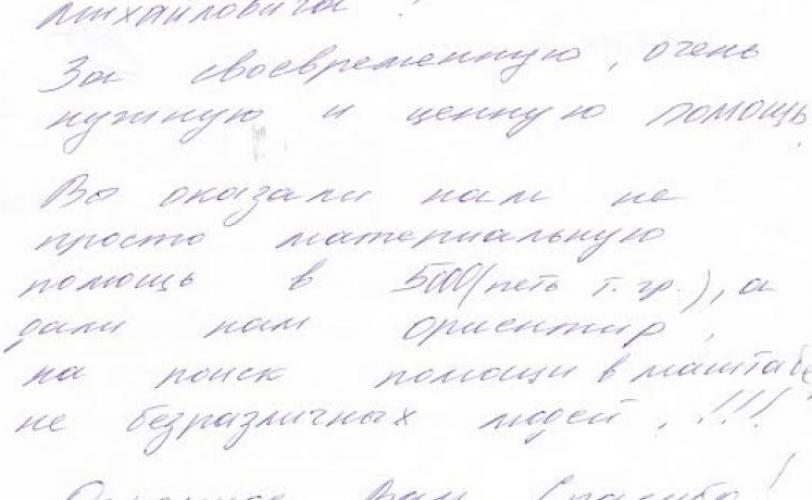 Михайловича !
За своевременную, очень
нужную и ценную помощь.
Вы оказали нам не
просто материальную
помощь в 5000(петь т. гр.), а
дали нам ориентир,
на поиск помощи в маштабе,
не безразличных людей, !!!
Огромное Вам Спасибо!